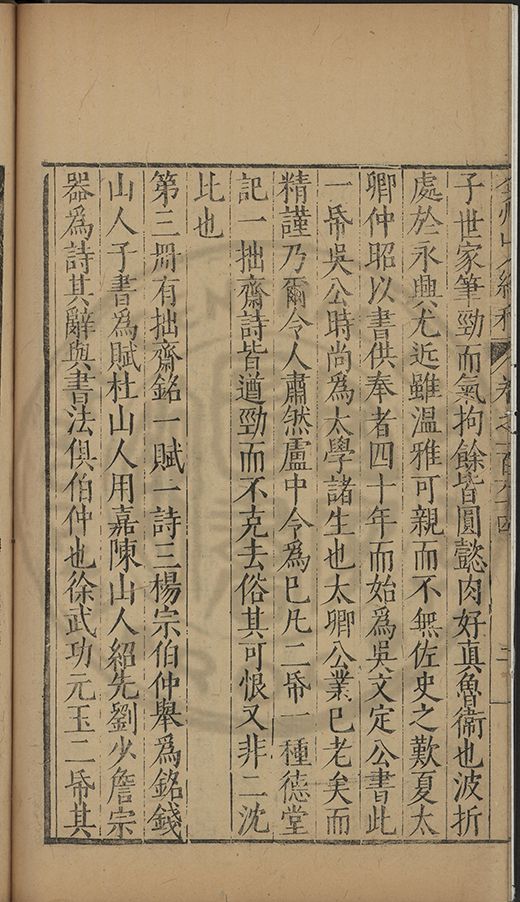 子世家筆勁而氣拘餘皆圓懿肉好真魯衛也波折
處於永興尤近雖溫雅可親而不無佐史之歎夏太
卿仲昭以書供奉者四十年而始為吳文定公書此
一帋吳公時尚為太學諸生也太卿公業已老矣而
精謹乃爾令人肅然盧中令為已凡二帋一種德堂
記一拙齋詩皆遒勁而不克去俗其可恨又非二沈
比也
第三冊有拙齋銘一賦一詩三楊宗伯仲舉為銘錢
山人子書為賦杜山人用嘉陳山人紹先劉少詹宗
器為詩其辭與書法俱伯仲也徐武功元玉二帋其